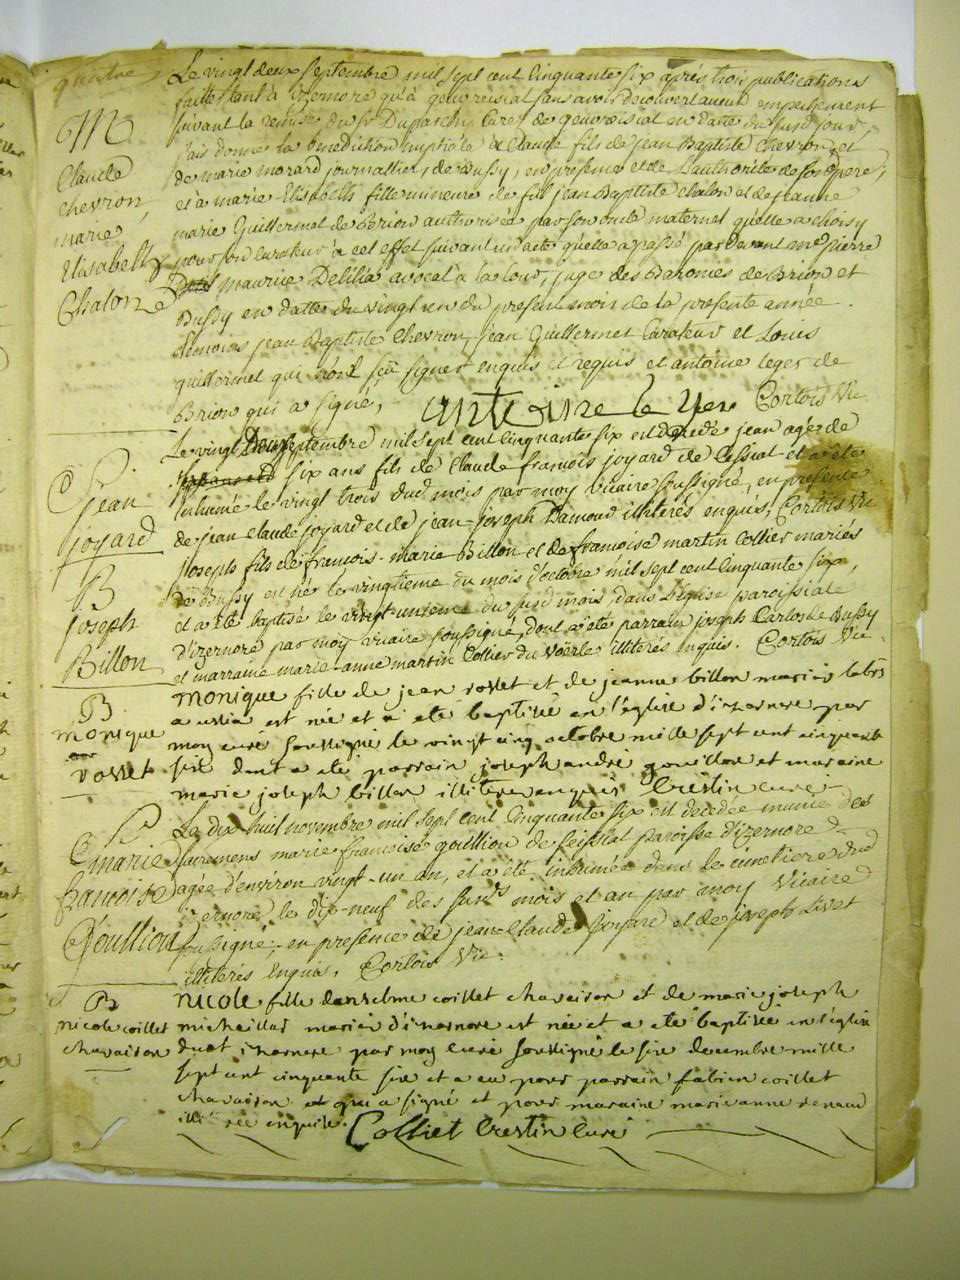 quatre
M
Claude
chevron,
marie
Elisabeth
Chalon
Le vingt deux septembre mil sept cent cinquante six après trois publications
faittes tant à izernore qu'à geovreissiat sans avoir decouvert aucun empechement
suivant la remise du sr Curé de geovreissiat en datte du susd jour,
j'ais donné la benediction nuptiale à Claude fils de jean Baptiste Chevron et
de marie morard journallier, de Bussy, en presence et de L'authorité de son pere,
et à marie-Elisabeth fille mineure de feû jean Baptiste Chalon et de jeanne
marie Guillermet de Brion authorisée par son oncle maternel qu'elle a choisy
pour son curateur à cet effet suivant un acte qu'elle a passé par devant me pierre
maurice Delilia avocat à la cour, juge des Baronies de Brion et
Bussy en datte du vingt un du present mois de la presente année.
temoins jean Baptiste Chevron, jean Guillermet Curateur et Louis
guillermet qui n'ont sçû signer enquis et requis et antoine leger de
Brion qui a signé,
Cortois Vic
C
jean
joyard
Le vingt Deux septembre mil sept cent cinquante six est decedé jean agé de
six ans fils de Claude françois joyard de Cessiat et a été
inhumé le vingt trois dud mois par moy vicaire soussigné, en presence
de jean Claude joyard et de jean-joseph illiterés enquis, Cortois Vic
B
joseph
Billon
joseph fils de françois-marie Billon et de françoise martin Collier mariés
de Bussy est né le vingtieme du mois d'octobre mil sept cent cinquante six,
et a été baptisé le vingt-unieme du susd mois, dans L'église paroissiale
d'izernore par moy vicaire soussigné, dont a été parrain joseph de Bussy
et marraine marie-anne martin Collier du Voerle illiterés enquis. Cortois Vic.
B
monique
vosset
monique fille de jean vosset et de jeanne billon mariés
a ussia est née et a été baptisée en l'église d'izernore par
moy curé soussigné le vingt cinq octobre mille sept cent cinquante
six dont a été parrain joseph andré gouillon et maraine
marie joseph billon illiterés enquis Crestin curé
C
marie
francoise
Goullion
Le dix huit novembre mil sept cent cinquante six est decedée munie des
sacremens marie françoise goullion de Ceissiat paroisse d'izernore
agée d'environ vingt-un an, et a été inhumée dans le cimetiere dud
izernore le dix-neuf des susds mois et an par moy Vicaire
soussigné, en presence de jean Claude joyard et de joseph Livet
illiterés enquis, Cortois Vic.
B
nicole coillet
chavaison
nicole fille danselme coillet chavaison et de marie joseph
michaillas mariés d'izernore est née et a été baptisée en l'église
dudt izernore par moy curé soussigné le six decembre mille
sept cent cinquante six et a eu pour parrain fabien coillet
chavaison et qui a signé et pour maraine marie anne renaud
enquise. Colliet Crestin Curé